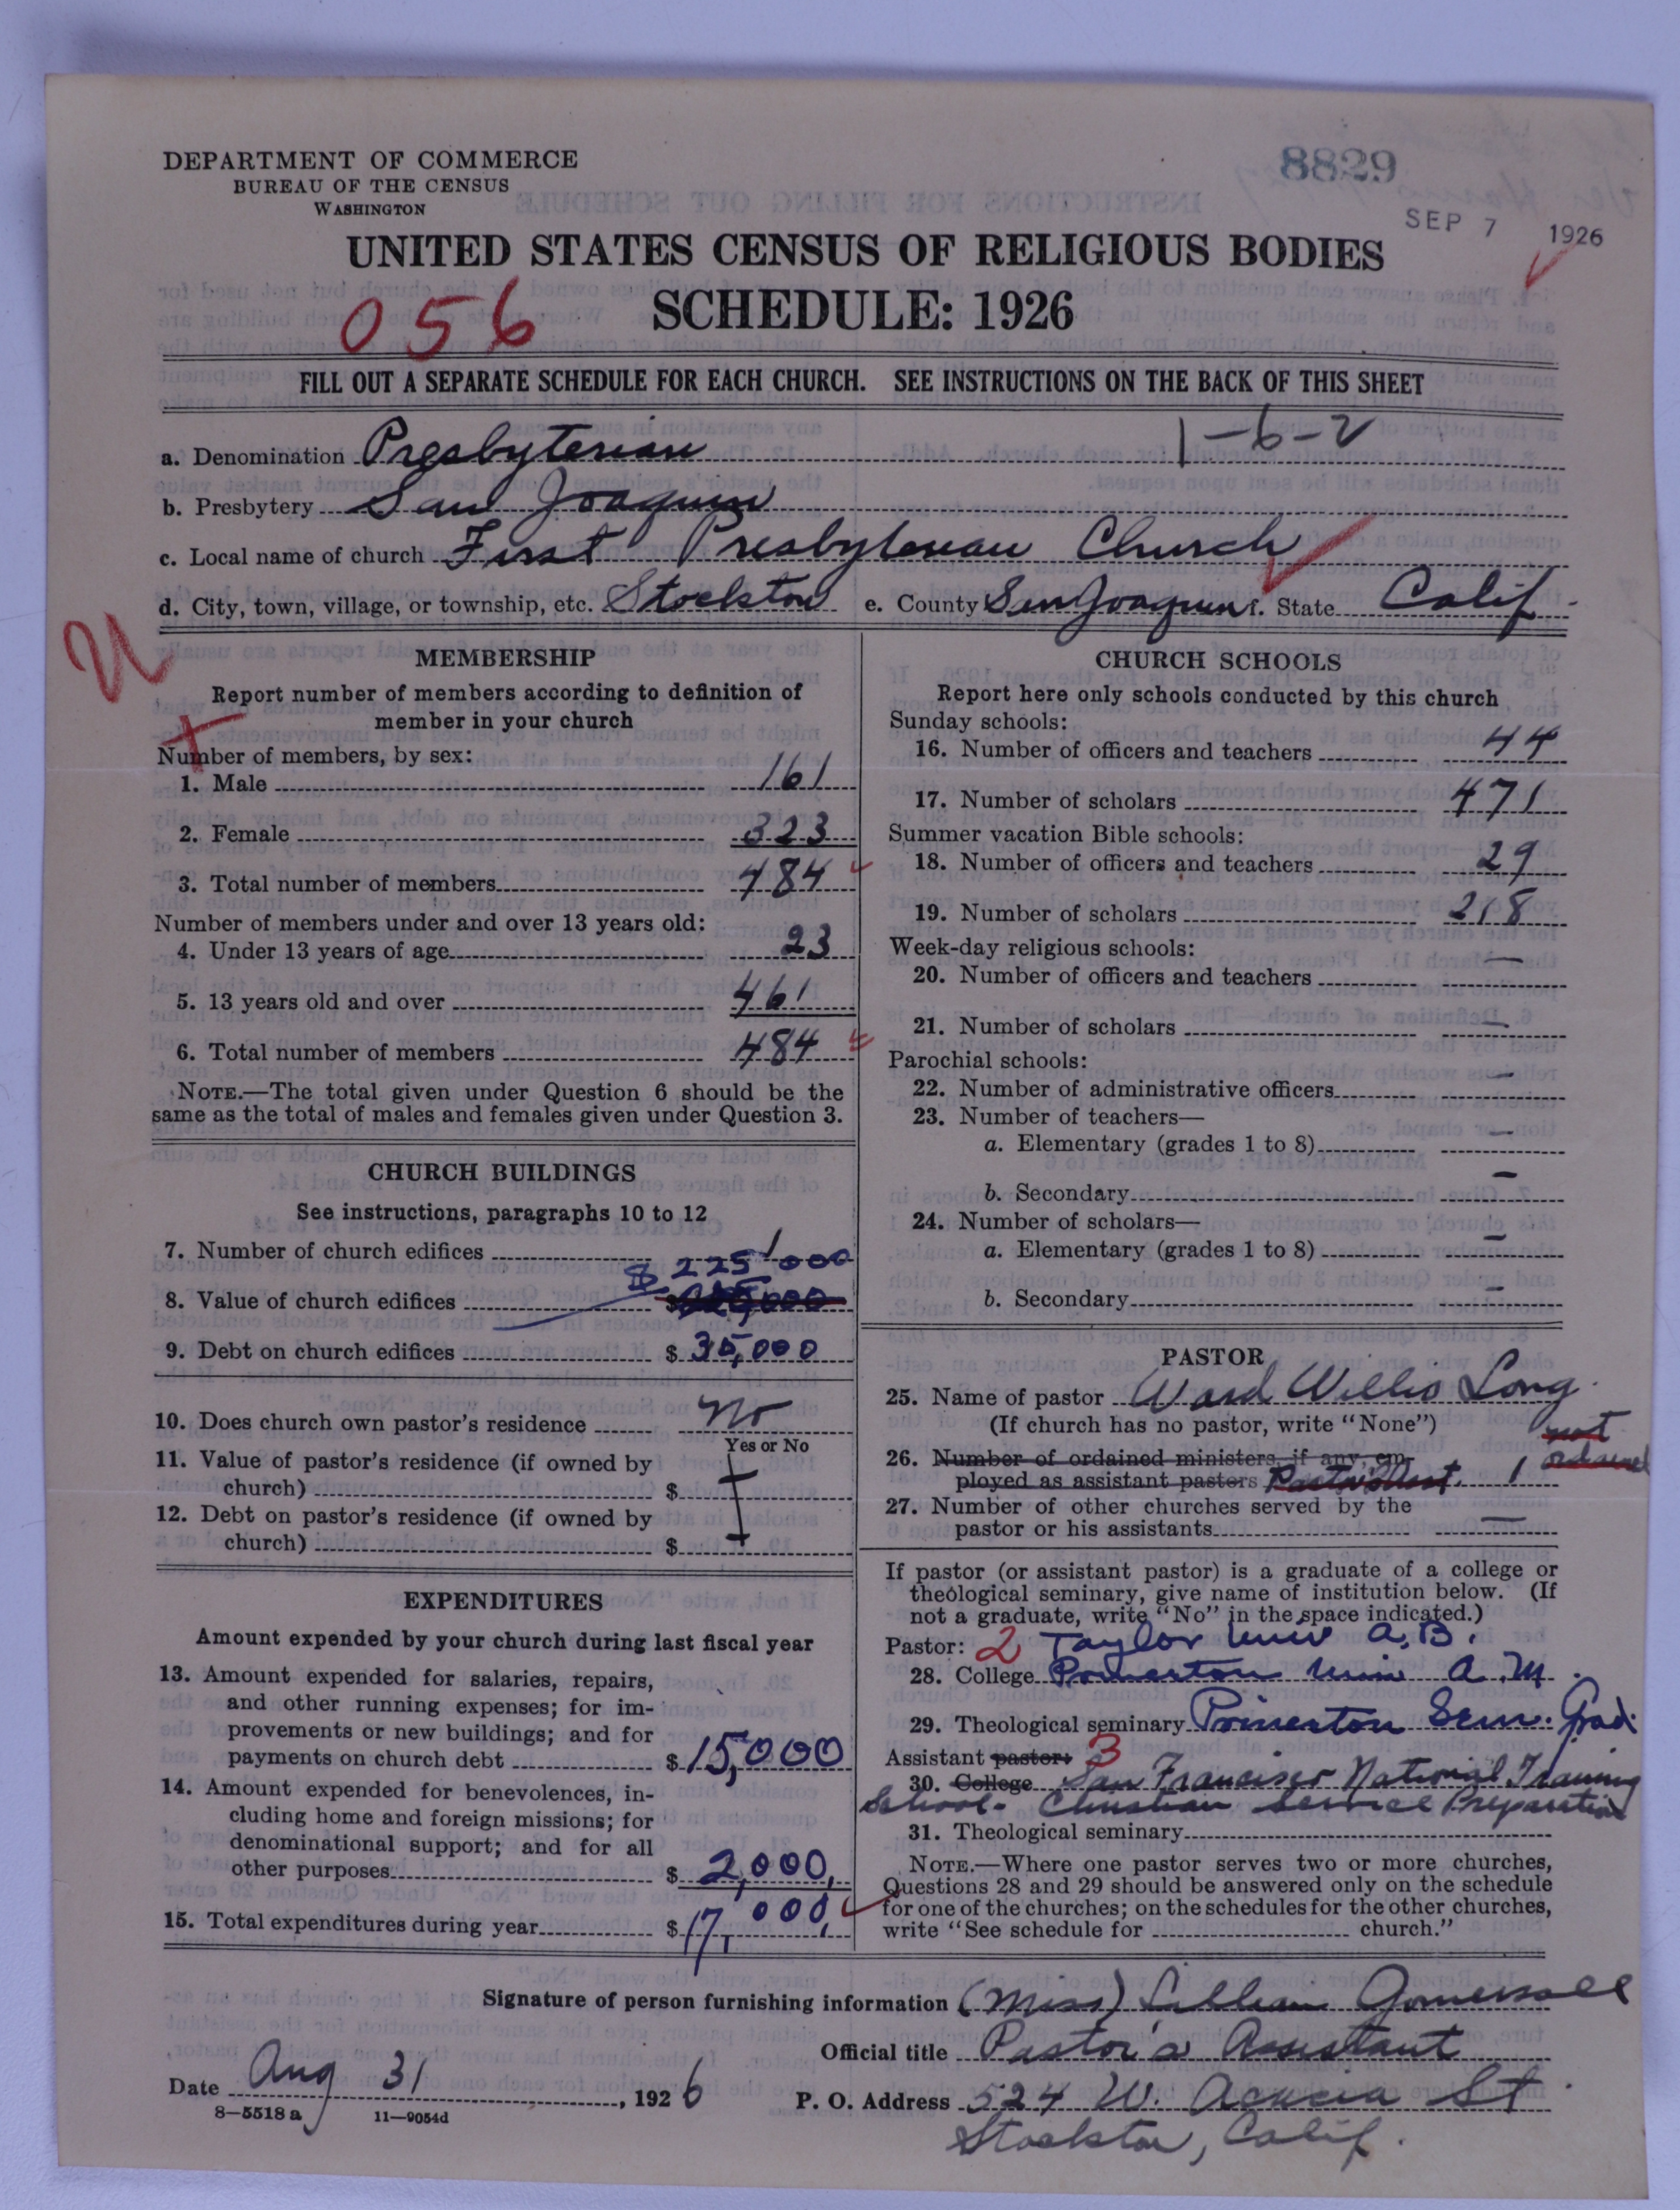 DEPARTMENT OF COMMERCE
BUREAU OF THE CENSUS
WASHINGTON
8829
SEP 7 1926
UNITED STATES CENSUS OF RELIGIOUS BODIES
SCHEDULE: 1926
056
FILL OUT A SEPARATE SCHEDULE FOR EACH CHURCH. SEE INSTRUCTIONS ON THE BACK OF THIS SHEET
1-6-2
a. Denomination Presbyterian
b. Presbytery San Joaquin
c. Local name of church First Presbyterian Church
d. City, town, village, or township, etc. Stockton e. County San Joaquin f. State Calif.
MEMBERSHIP
Report number of members according to definition of
member in your church
Number of members, by sex:
1. Male 161
2. Female 323
3. Total number of members 484
Number of members under and over 13 years old:
4. Under 13 years of age 23
5. 13 years old and over 461
6. Total number of members 484
NOTE.—The total given under Question 6 should be the
same as the total of males and females given under Question 3.
CHURCH BUILDINGS
See instructions, paragraphs 10 to 12
7. Number of church edifices 1
$ 225 000
8. Value of church edifices $
9. Debt on church edifices $ 35,000
10. Does church own pastor's residence No
Yes or No
11. Value of pastor's residence (if owned by
church) $
12. Debt on pastor's residence (if owned by
church) $
EXPENDITURES
Amount expended by your church during last fiscal year
13. Amount expended for salaries, repairs,
and other running expenses; for im-
provements or new buildings; and for
payments on church debt $ 15,000
14. Amount expended for benevolences, in-
cluding home and foreign missions; for
denominational support; and for all
other purposes $ 2,000.
15. Total expenditures during year $ 17,000.
CHURCH SCHOOLS
Report here only schools conducted by this church
Sunday schools:
16. Number of officers and teachers 44
17. Number of scholars 471
Summer vacation Bible schools:
18. Number of officers and teachers 29
19. Number of scholars 218
Week-day religious schools:
20. Number of officers and teachers —
21. Number of scholars —
Parochial schools:
22. Number of administrative officers —
23. Number of teachers—
a. Elementary (grades 1 to 8) —
b. Secondary —
24. Number of scholars—
a. Elementary (grades 1 to 8) —
b. Secondary —
PASTOR
25. Name of pastor Ward Willis Long
(If church has no pastor, write "None")
not
ordained
26. Number of ordained ministers, if any, em-
ployed as assistant pastors Pastor's Asst. 1
27. Number of other churches served by the
pastor or his assistants —
If pastor (or assistant pastor) is a graduate of a college or
theological seminary, give name of institution below. (If
not a graduate, write "No" in the space indicated.)
Pastor: 2 Taylor Univ A.B.
28. College Princeton Univ A.M.
29. Theological seminary Princeton Sem. Grad.
Assistant pastor: 3
30. College San Francisco National Training
School - Christian Service Preparation
31. Theological seminary
NOTE.—Where one pastor serves two or more churches,
Questions 28 and 29 should be answered only on the schedule
for one of the churches; on the schedules for the other churches,
write "See schedule for church."
Signature of person furnishing information (Miss) Lillian Gomersall
Official title Pastor's Assistant
Date Aug 31, 1926 P. O. Address 524 W. Acacia St.
Stockton, Calif.
8—5518 a 11—9054d